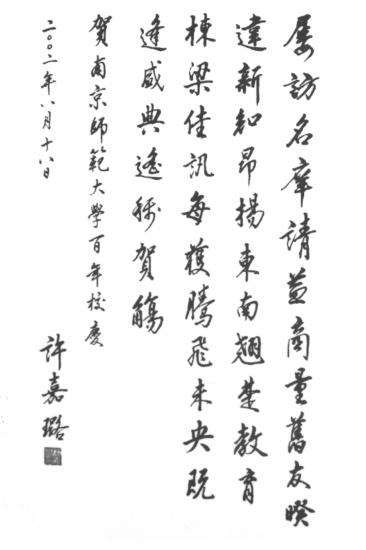 屢訪名庠請益商量舊友暌
違新知昂揚東南翹楚教育
棟梁佳訊每獲騰飛未央既
逢盛典遙稱賀觴
賀南京師範大學百年校慶
二〇〇二年八月十八日
許嘉璐